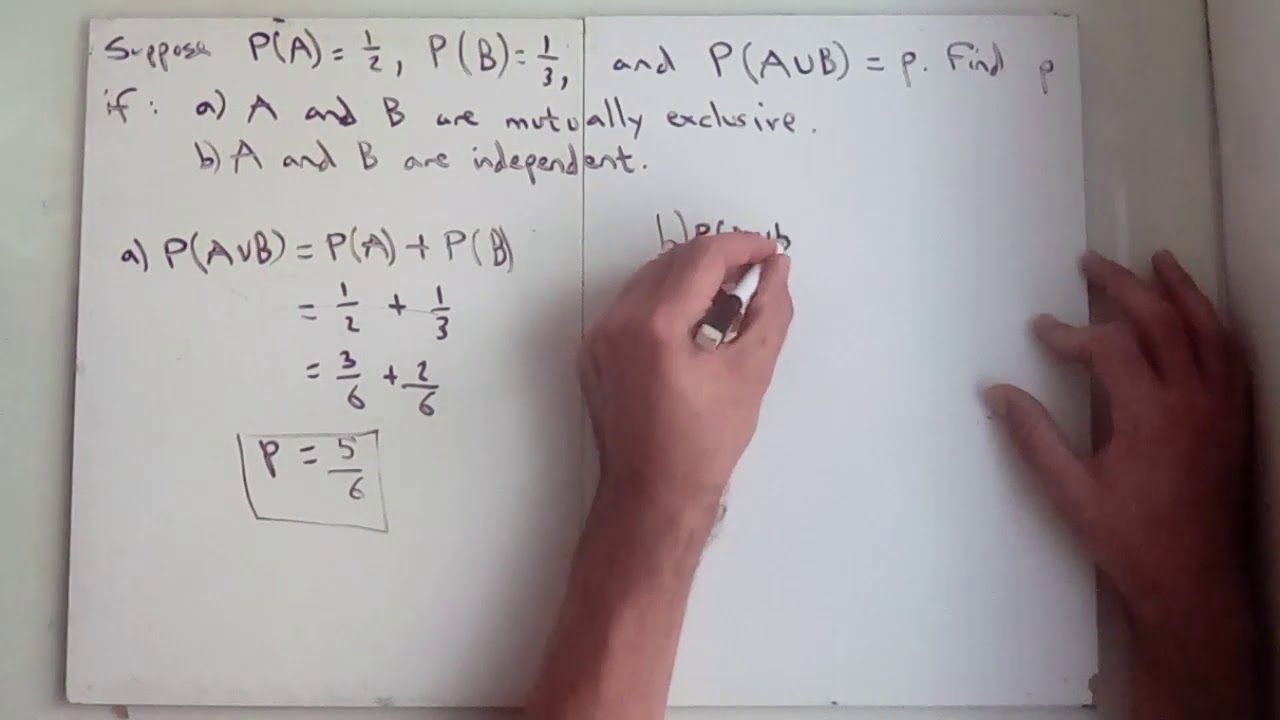 Suppose P(A) = 1/2, P(B) = 1/3, and P(A∪B) = p. Find p
if: a) A and B are mutually exclusive.
b) A and B are independent.
a) P(A∪B) = P(A) + P(B)
= 1/2 + 1/3
= 3/6 + 2/6
p = 5/6
b)